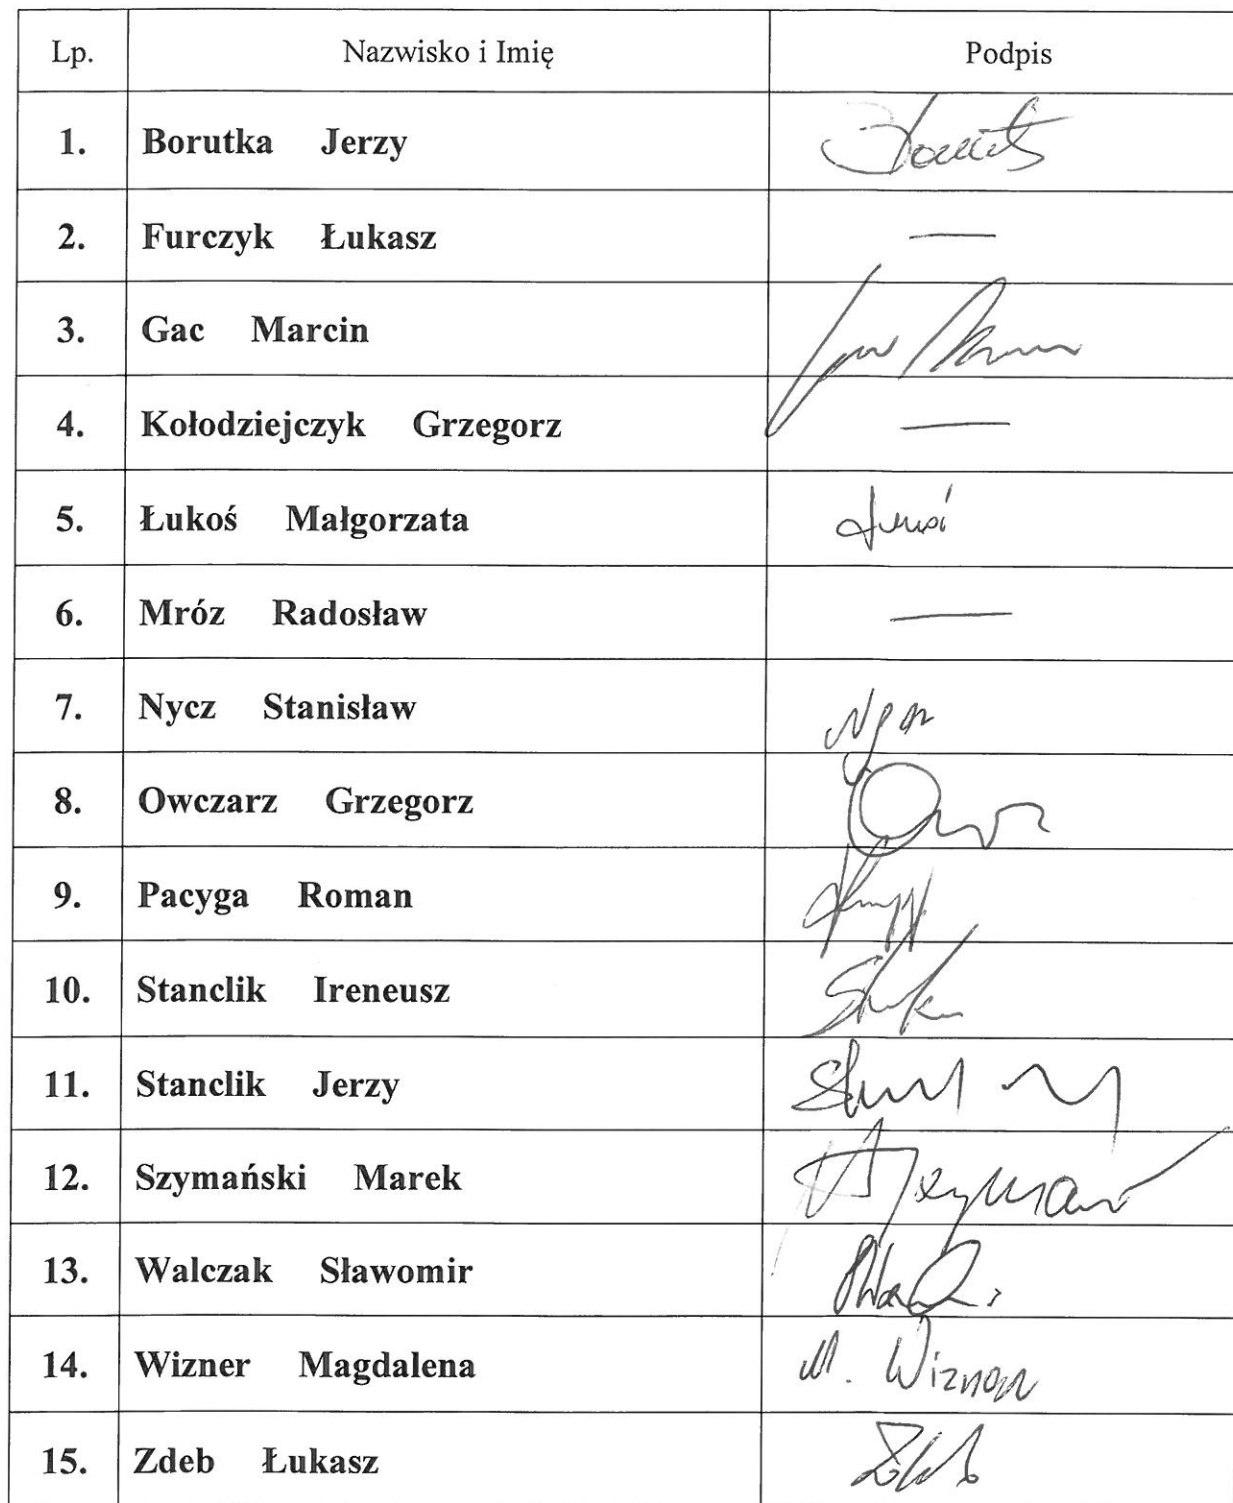 Lp. Nazwisko i Imię Podpis
1. Borutka Jerzy
2. Furczyk Łukasz —
3. Gac Marcin
4. Kołodziejczyk Grzegorz —
5. Łukoś Małgorzata
6. Mróz Radosław —
7. Nycz Stanisław
8. Owczarz Grzegorz
9. Pacyga Roman
10. Stanclik Ireneusz
11. Stanclik Jerzy
12. Szymański Marek
13. Walczak Sławomir
14. Wizner Magdalena M. Wizner
15. Zdeb Łukasz